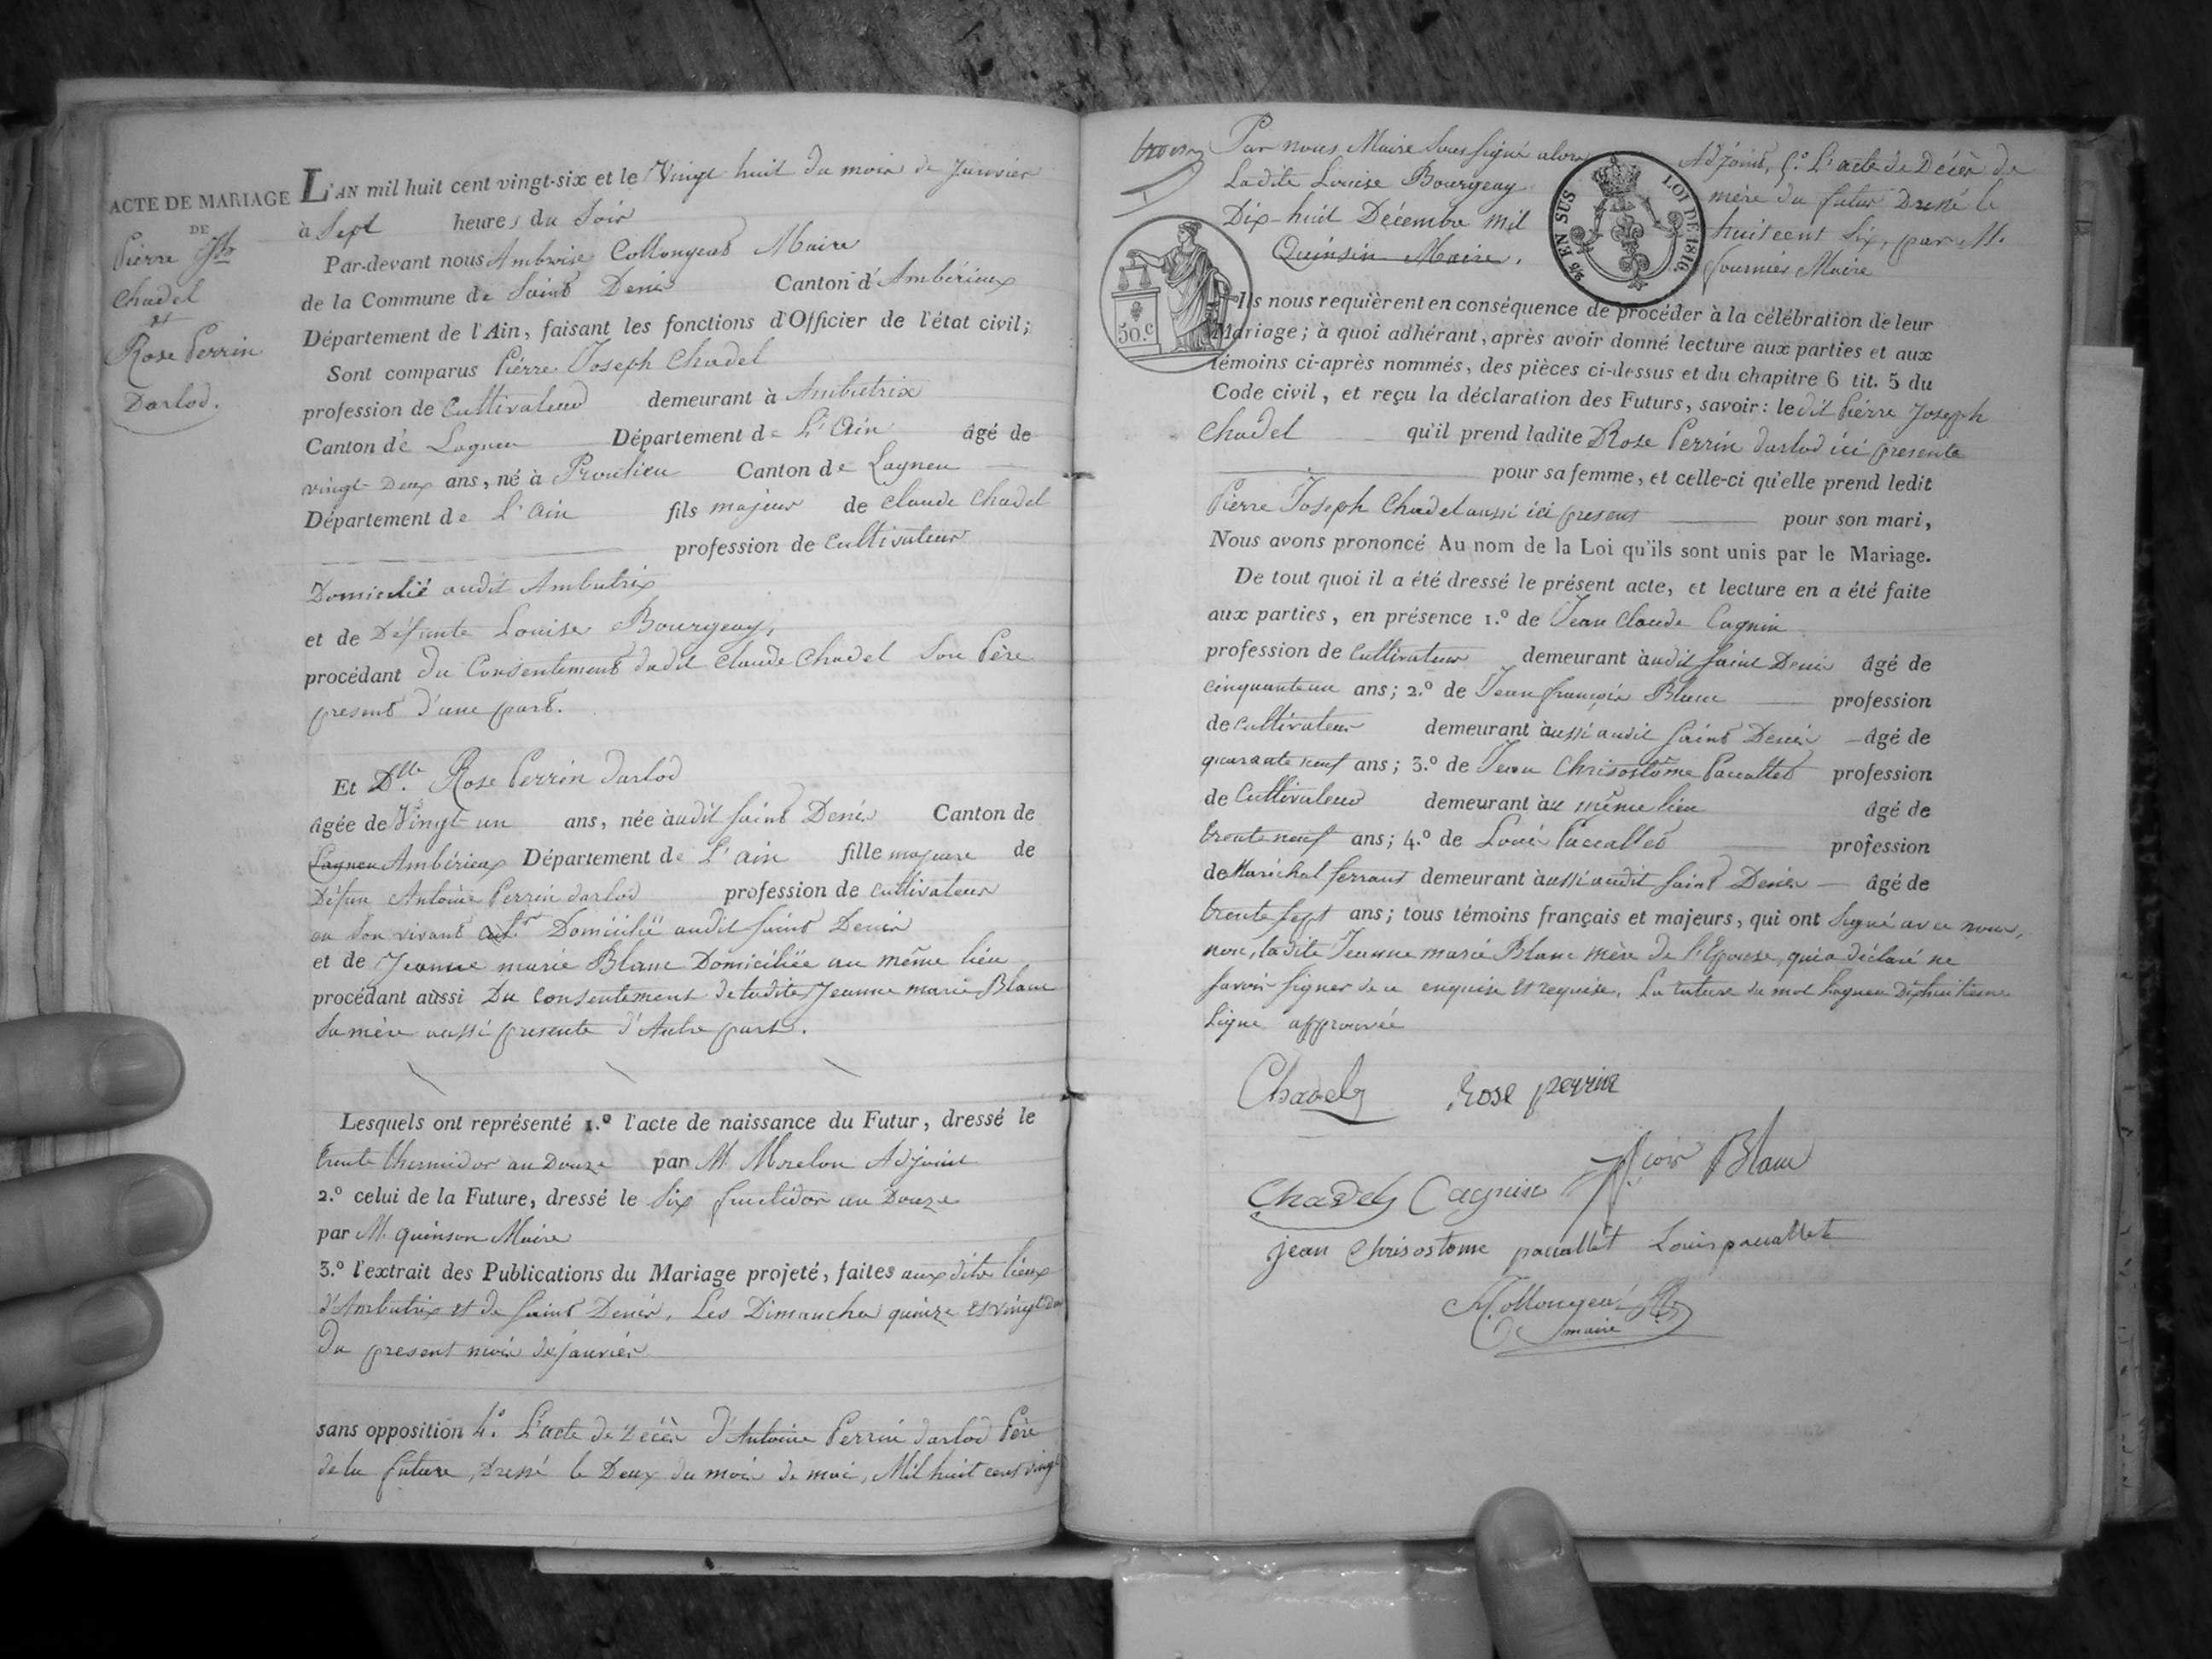 ACTE DE MARIAGE
DE
Pierre Jph
Chadel
et
Rose Perrin
Darlod.
L'AN mil huit cent vingt-six et le Vingt huit du mois de Janvier
à Sept heures du Soir
Par-devant nous Ambroise Collongeas Maire
de la Commune de Saint Denis Canton d'Ambérieux
Département de l'Ain, faisant les fonctions d'Officier de l'état civil;
Sont comparus Pierre Joseph Chadel
profession de Cultivateur demeurant à Ambutrix
Canton de Lagneu Département de L'Ain âgé de
vingt Deux ans, né à Proulieu Canton de Lagneu
Département de L'Ain fils majeur de Claude Chadel
profession de Cultivateur
Domicilié audit Ambutrix
et de Défunte Louise Bourgeay,
procédant du Consentement dudit Claude Chadel Son Père
present d'une part.
Et Dlle Rose Perrin darlod
âgée de Vingt un ans, née audit Saint Denis Canton de
Lagneu Ambérieux Département de L'ain fille majeure de
Défun Antoine Perrin darlod profession de Cultivateur
en Son vivant Domicilié audit Saint Denis
et de Jeanne marie Blanc Domiciliée au même lieu
procédant aussi Du Consentement de ladite Jeanne marie Blanc
Sa mère aussi presente d'Autre part.
Lesquels ont représenté 1.º l'acte de naissance du Futur, dressé le
trente thermidor an Douze par M. Morelon Adjoint
2.º celui de la Future, dressé le Six fructidor an Douze
par M. quinson Maire
3.º l'extrait des Publications du Mariage projeté, faites aux dits lieux
d'Ambutrix et de Saint Denis, Les Dimanches quinze et vingt deux
Du present mois de janvier
sans opposition 4.º L'acte de Décès d'Antoine Perrin darlod Père
de la future, Dressé le Deux du mois de mai, Mil huit cent vingt
trois Par nous Maire Soussigné alors Adjoint, 5.º L'acte de Décès de
Ladite Louise Bourgeay mère du futur Dressé le
Dix-huit Décembre mil huit cent Six, par M.
Quinsin Maire. fournier Maire
EN SUS LOI DE 1816
50.c
Ils nous requièrent en conséquence de procéder à la célébration de leur
Mariage; à quoi adhérant, après avoir donné lecture aux parties et aux
témoins ci-après nommés, des pièces ci-dessus et du chapitre 6 tit. 5 du
Code civil, et reçu la déclaration des Futurs, savoir: ledit Pierre Joseph
Chadel qu'il prend ladite Rose Perrin darlod ici presente
pour sa femme, et celle-ci qu'elle prend ledit
Pierre Joseph Chadel aussi ici present pour son mari,
Nous avons prononcé Au nom de la Loi qu'ils sont unis par le Mariage.
De tout quoi il a été dressé le présent acte, et lecture en a été faite
aux parties, en présence 1.º de Jean Claude Cagnin
profession de Cultivateur demeurant audit Saint Denis âgé de
cinquante un ans; 2.º de Jean françois Blanc profession
de Cultivateur demeurant aussi audit Saint Denis âgé de
quarante neuf ans; 3.º de Jean Chrisostôme Paccallet profession
de Cultivateur demeurant au même lieu âgé de
trente neuf ans; 4.º de Louis Paccallet profession
de Maréchal ferrant demeurant aussi audit Saint Denis âgé de
trente Sept ans; tous témoins français et majeurs, qui ont Signé avec nous,
non, ladite Jeanne marie Blanc mère de l'Epouse, qui a déclaré ne
Savoir Signer de ce enquise et requise. La rature du mot Lagneu Dixhuitieme
Ligne approuvée
Chadel Rose perrin
Chadel Cagnin fcois Blanc
jean Chrisostome paccallet Louis paccallet
Collongeas
maire